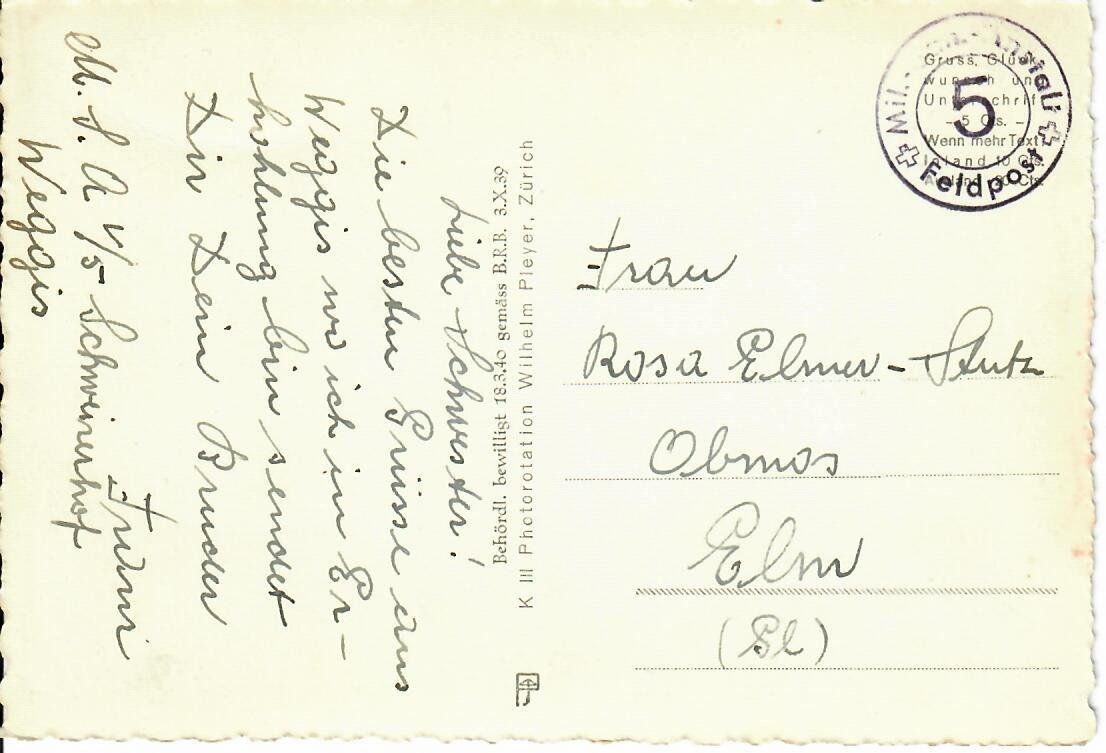 Liebe Schwester!
Die besten Grüsse aus
Weggis wo ich in Er-
hohlung bin sendet
Dir Dein Bruder
M. S. A V/5 Schweizerhof
Weggis
Behördl. bewilligt 18.3.40 gemäss B.R.B. 3.X.39
K III Photorotation Wilhelm Pleyer, Zürich
Gruss, Glück-
wunsch un
Unterschrift
- 5 Cts. -
Wenn mehr Text
Inland 10 Cts.
Mil.
Anstalt
5
Feldpost
Frau
Rosa Elmer-Stutz
Obmos
Elm
(Gl)